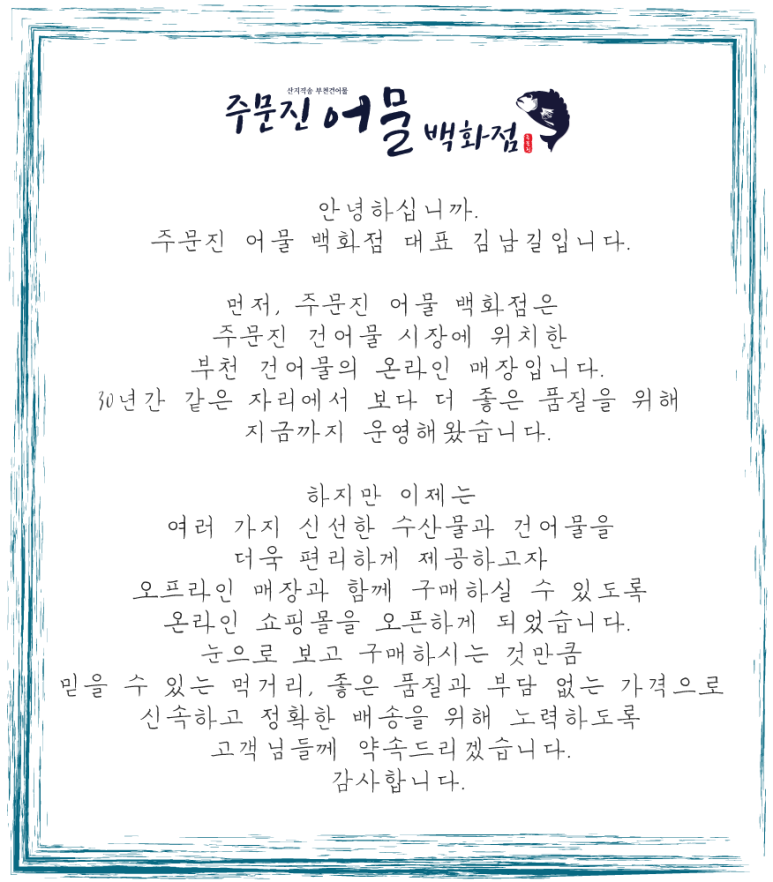 산지직송 부천건어물
주문진 어물 백화점
안녕하십니까.
주문진 어물 백화점 대표 김남길입니다.
먼저, 주문진 어물 백화점은
주문진 건어물 시장에 위치한
부천 건어물의 온라인 매장입니다.
30년간 같은 자리에서 보다 더 좋은 품질을 위해
지금까지 운영해왔습니다.
하지만 이제는
여러 가지 신선한 수산물과 건어물을
더욱 편리하게 제공하고자
오프라인 매장과 함께 구매하실 수 있도록
온라인 쇼핑몰을 오픈하게 되었습니다.
눈으로 보고 구매하시는 것만큼
믿을 수 있는 먹거리, 좋은 품질과 부담 없는 가격으로
신속하고 정확한 배송을 위해 노력하도록
고객님들께 약속드리겠습니다.
감사합니다.